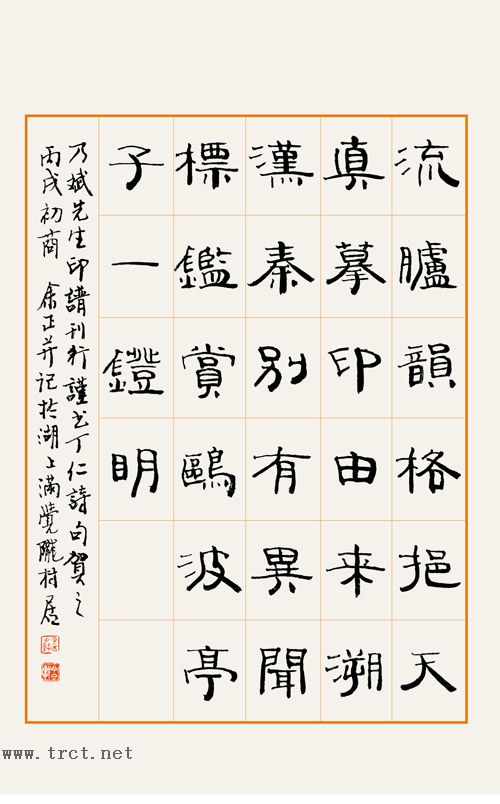 流臚韻格挹天
真摹印由来溯
漢秦別有異聞
標鑑賞鷗波亭
子一鐙明
乃斌先生印譜刊行謹書丁仁詩句賀之
丙戌初商 余正并記於湖上滿覺隴村居
www.trct.net